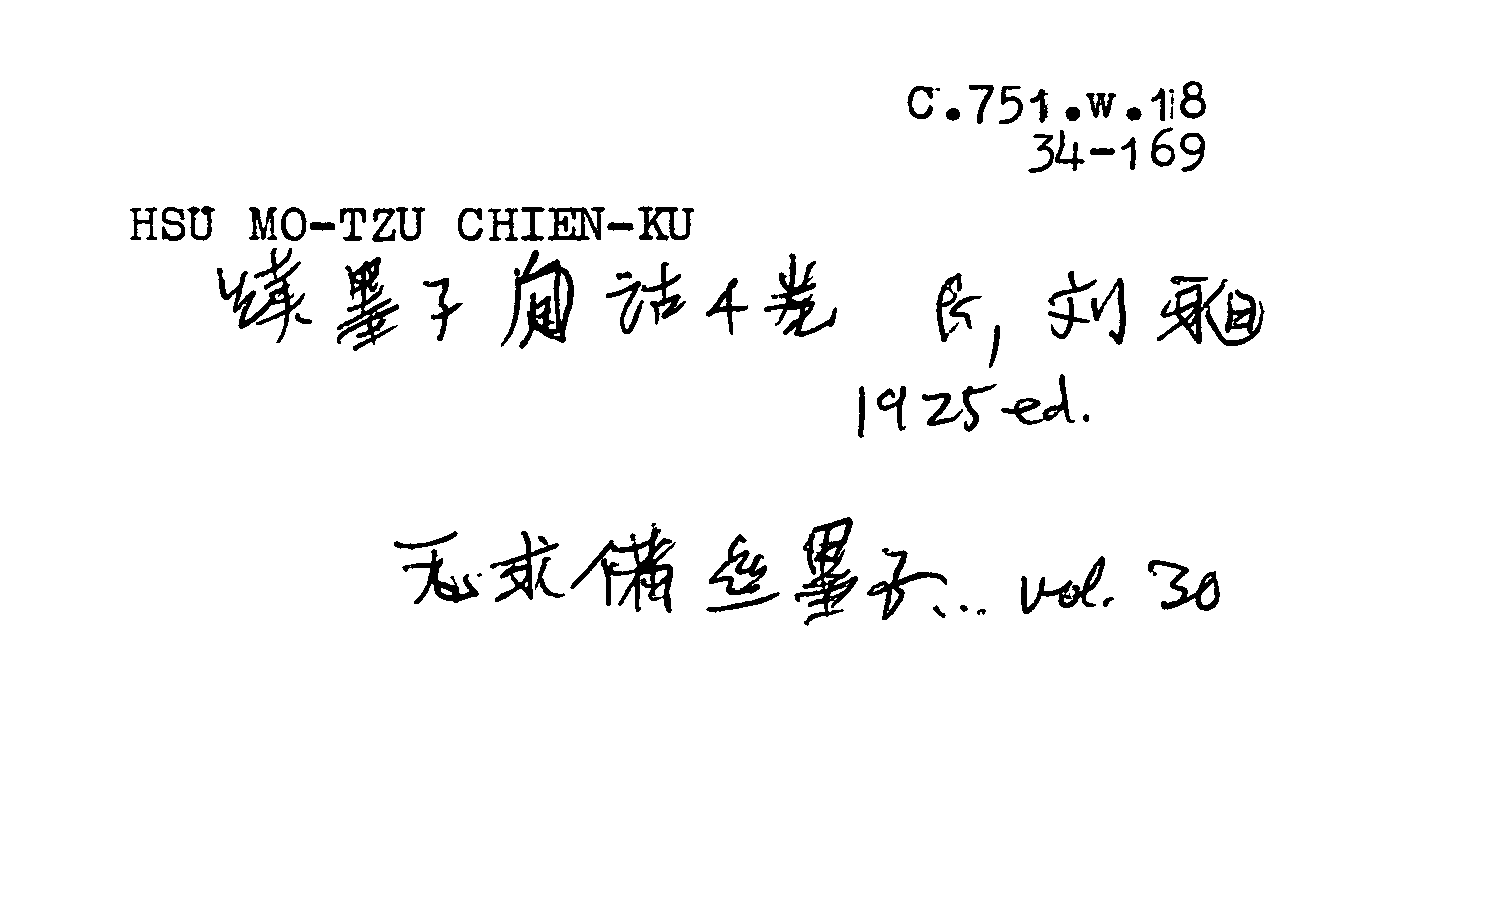 C.751.w.18
34-169
HSU MO-TZU CHIEN-KU
续墨子閒诂4卷 民, 刘昶
1925 ed.
无求備亝墨子... vol. 30